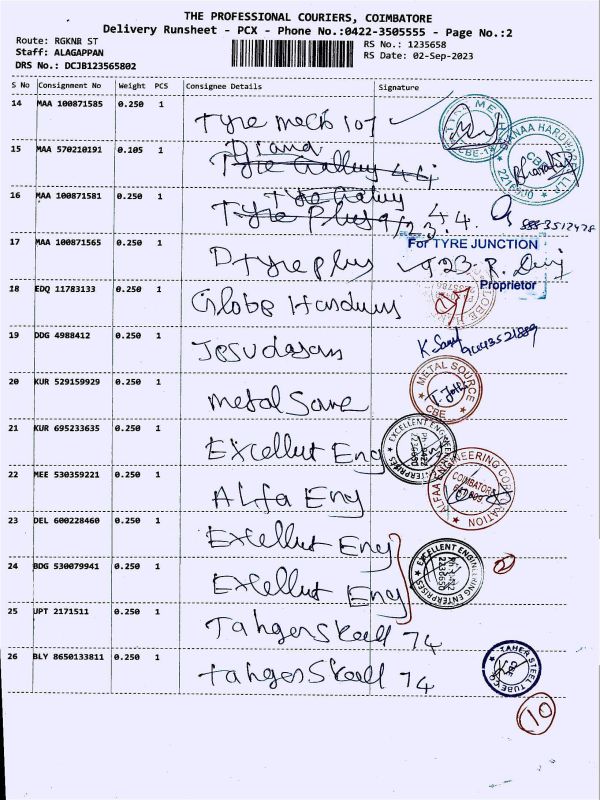 THE PROFESSIONAL COURIERS, COIMBATORE
Delivery Runsheet - PCX - Phone No.:0422-3505555 - Page No.:2
Route: RGKNR ST
RS No.: 1235658
Staff: ALAGAPPAN
RS Date: 02-Sep-2023
DRS No.: DCJB123565802
S No Consignment No Weight PCS Consignee Details Signature
14 MAA 100871585 0.250 1
Tyre mech 107
15 MAA 570210191 0.105 1
Diana
Tyre Gallery 44
16 MAA 100871581 0.250 1
Tyre Gallery
Tyre Plus 9/23. 4.4.
9883512478
17 MAA 100871565 0.250 1
For TYRE JUNCTION
D tyre plus 923. R.
Proprietor
18 EDQ 11783133 0.250 1
Globe Hardwus
19 DDG 4988412 0.250 1
Jesudasan
9443521889
20 KUR 529159929 0.250 1
METAL SOURCE
CBE
metal Sore
21 KUR 695233635 0.250 1
EXCELLENT ENGINEERING ENTERPRISES
PH: 0422
2236650
Excellut Eng
22 MEE 530359221 0.250 1
ALFAA ENGINEERING CORPORATION
COIMBATORE
Alfa Eng
23 DEL 600228460 0.250 1
Excellut Eng
24 BDG 530079941 0.250 1
EXCELLENT ENGINEERING ENTERPRISES
PH: 0422
2236650
Excellut Eng
25 UPT 2171511 0.250 1
Tahger Skeell 74
26 BLY 8650133811 0.250 1
Tahger Skeell 74
TAHER STEEL TUBE CO
CBE
10